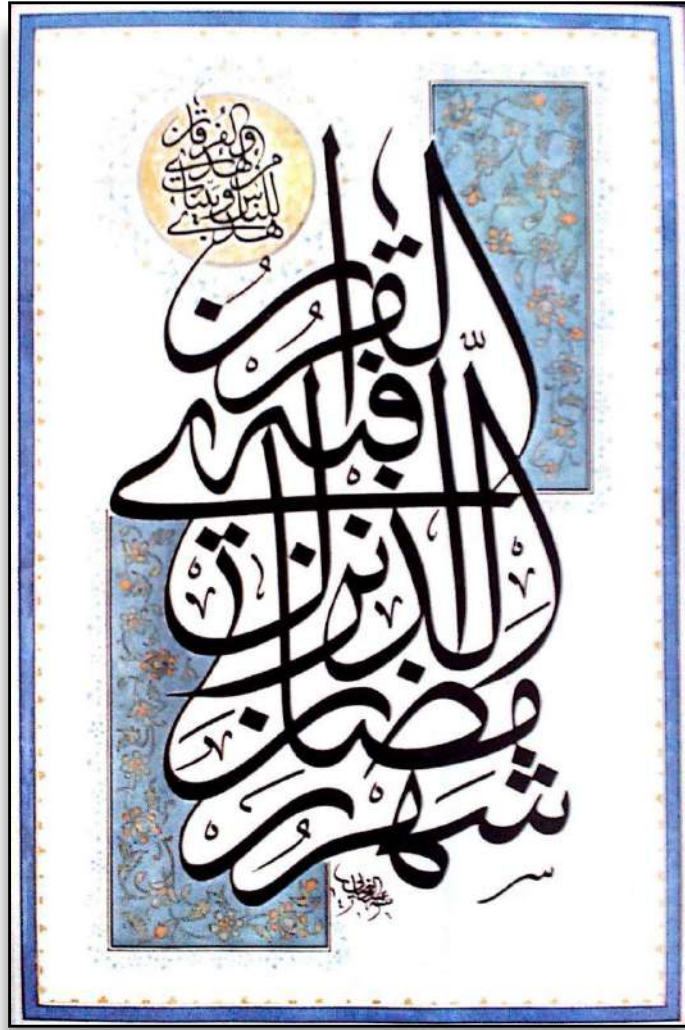 شهر رمضان
الذي أنزل
فيه
القرآن
هدى
للناس وبينات
من الهدى
والفرقان